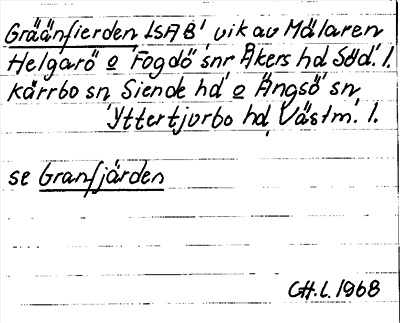 Gräänfierden LSAB' vik av Mälaren
Helgarö o Fogdö snr Åkers hd Söd. l.
Kärrbo sn Siende hd o Ängsö sn
Yttertjurbo hd Västm. l.
se Granfjärden
CH.L. 1968